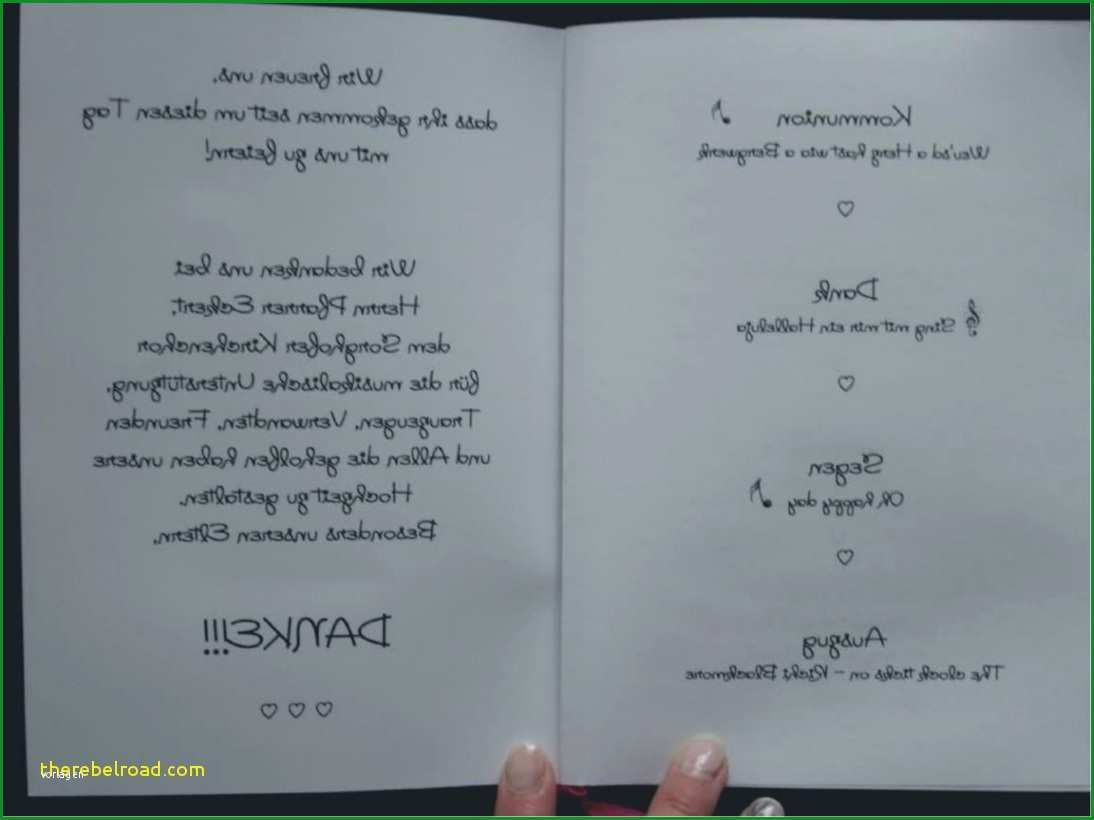 Kommunion
Weu'sd a Herz hast wia a Bergwerk
Dank
Sing mit mir ein Halleluja
Segen
Oh happy day
Auszug
The clock ticks on – Richi Blackmore
Wir freuen uns,
dass ihr gekommen seit um diesen Tag
mit uns zu feiern!
Wir bedanken uns bei
Herrn Pfarrer Eckert,
dem Sorghofer Kirchenchor
für die musikalische Unterstützung,
Trauzeugen, Verwandten, Freunden
und Allen die geholfen haben unsere
Hochzeit zu gestalten.
Besonders unseren Eltern,
DANKE!!!
therebelroad.com
vorlagen